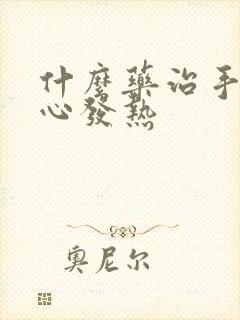 什麼藥治手
心發熱
奧尼尔